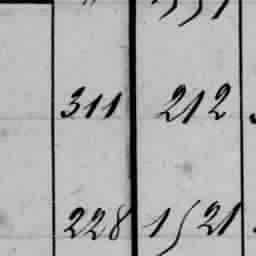 311 212
228 1521